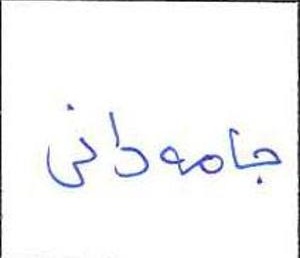 جامه دانی